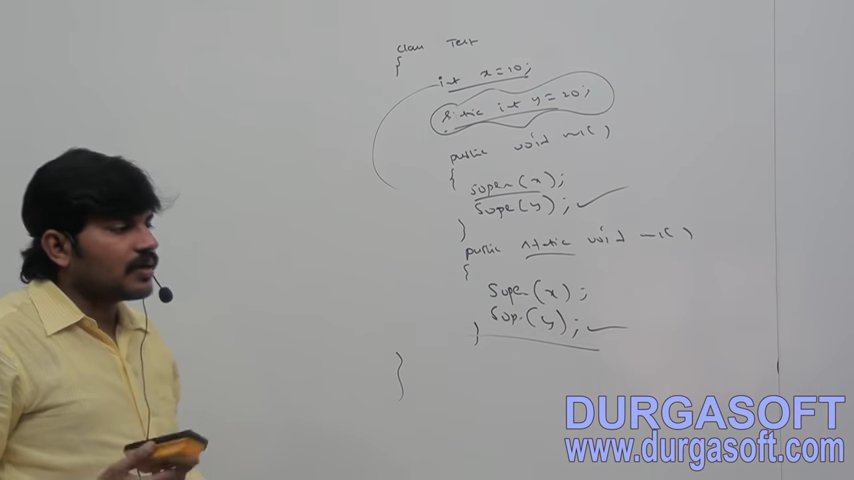 class Test
{
int x=10;
static int y=20;
public void m1( )
{
Sopln(x);
Sopln(y);
}
public static void m1( )
{
Sopln(x);
Sop.(y);
}
}
DURGASOFT
www.durgasoft.com